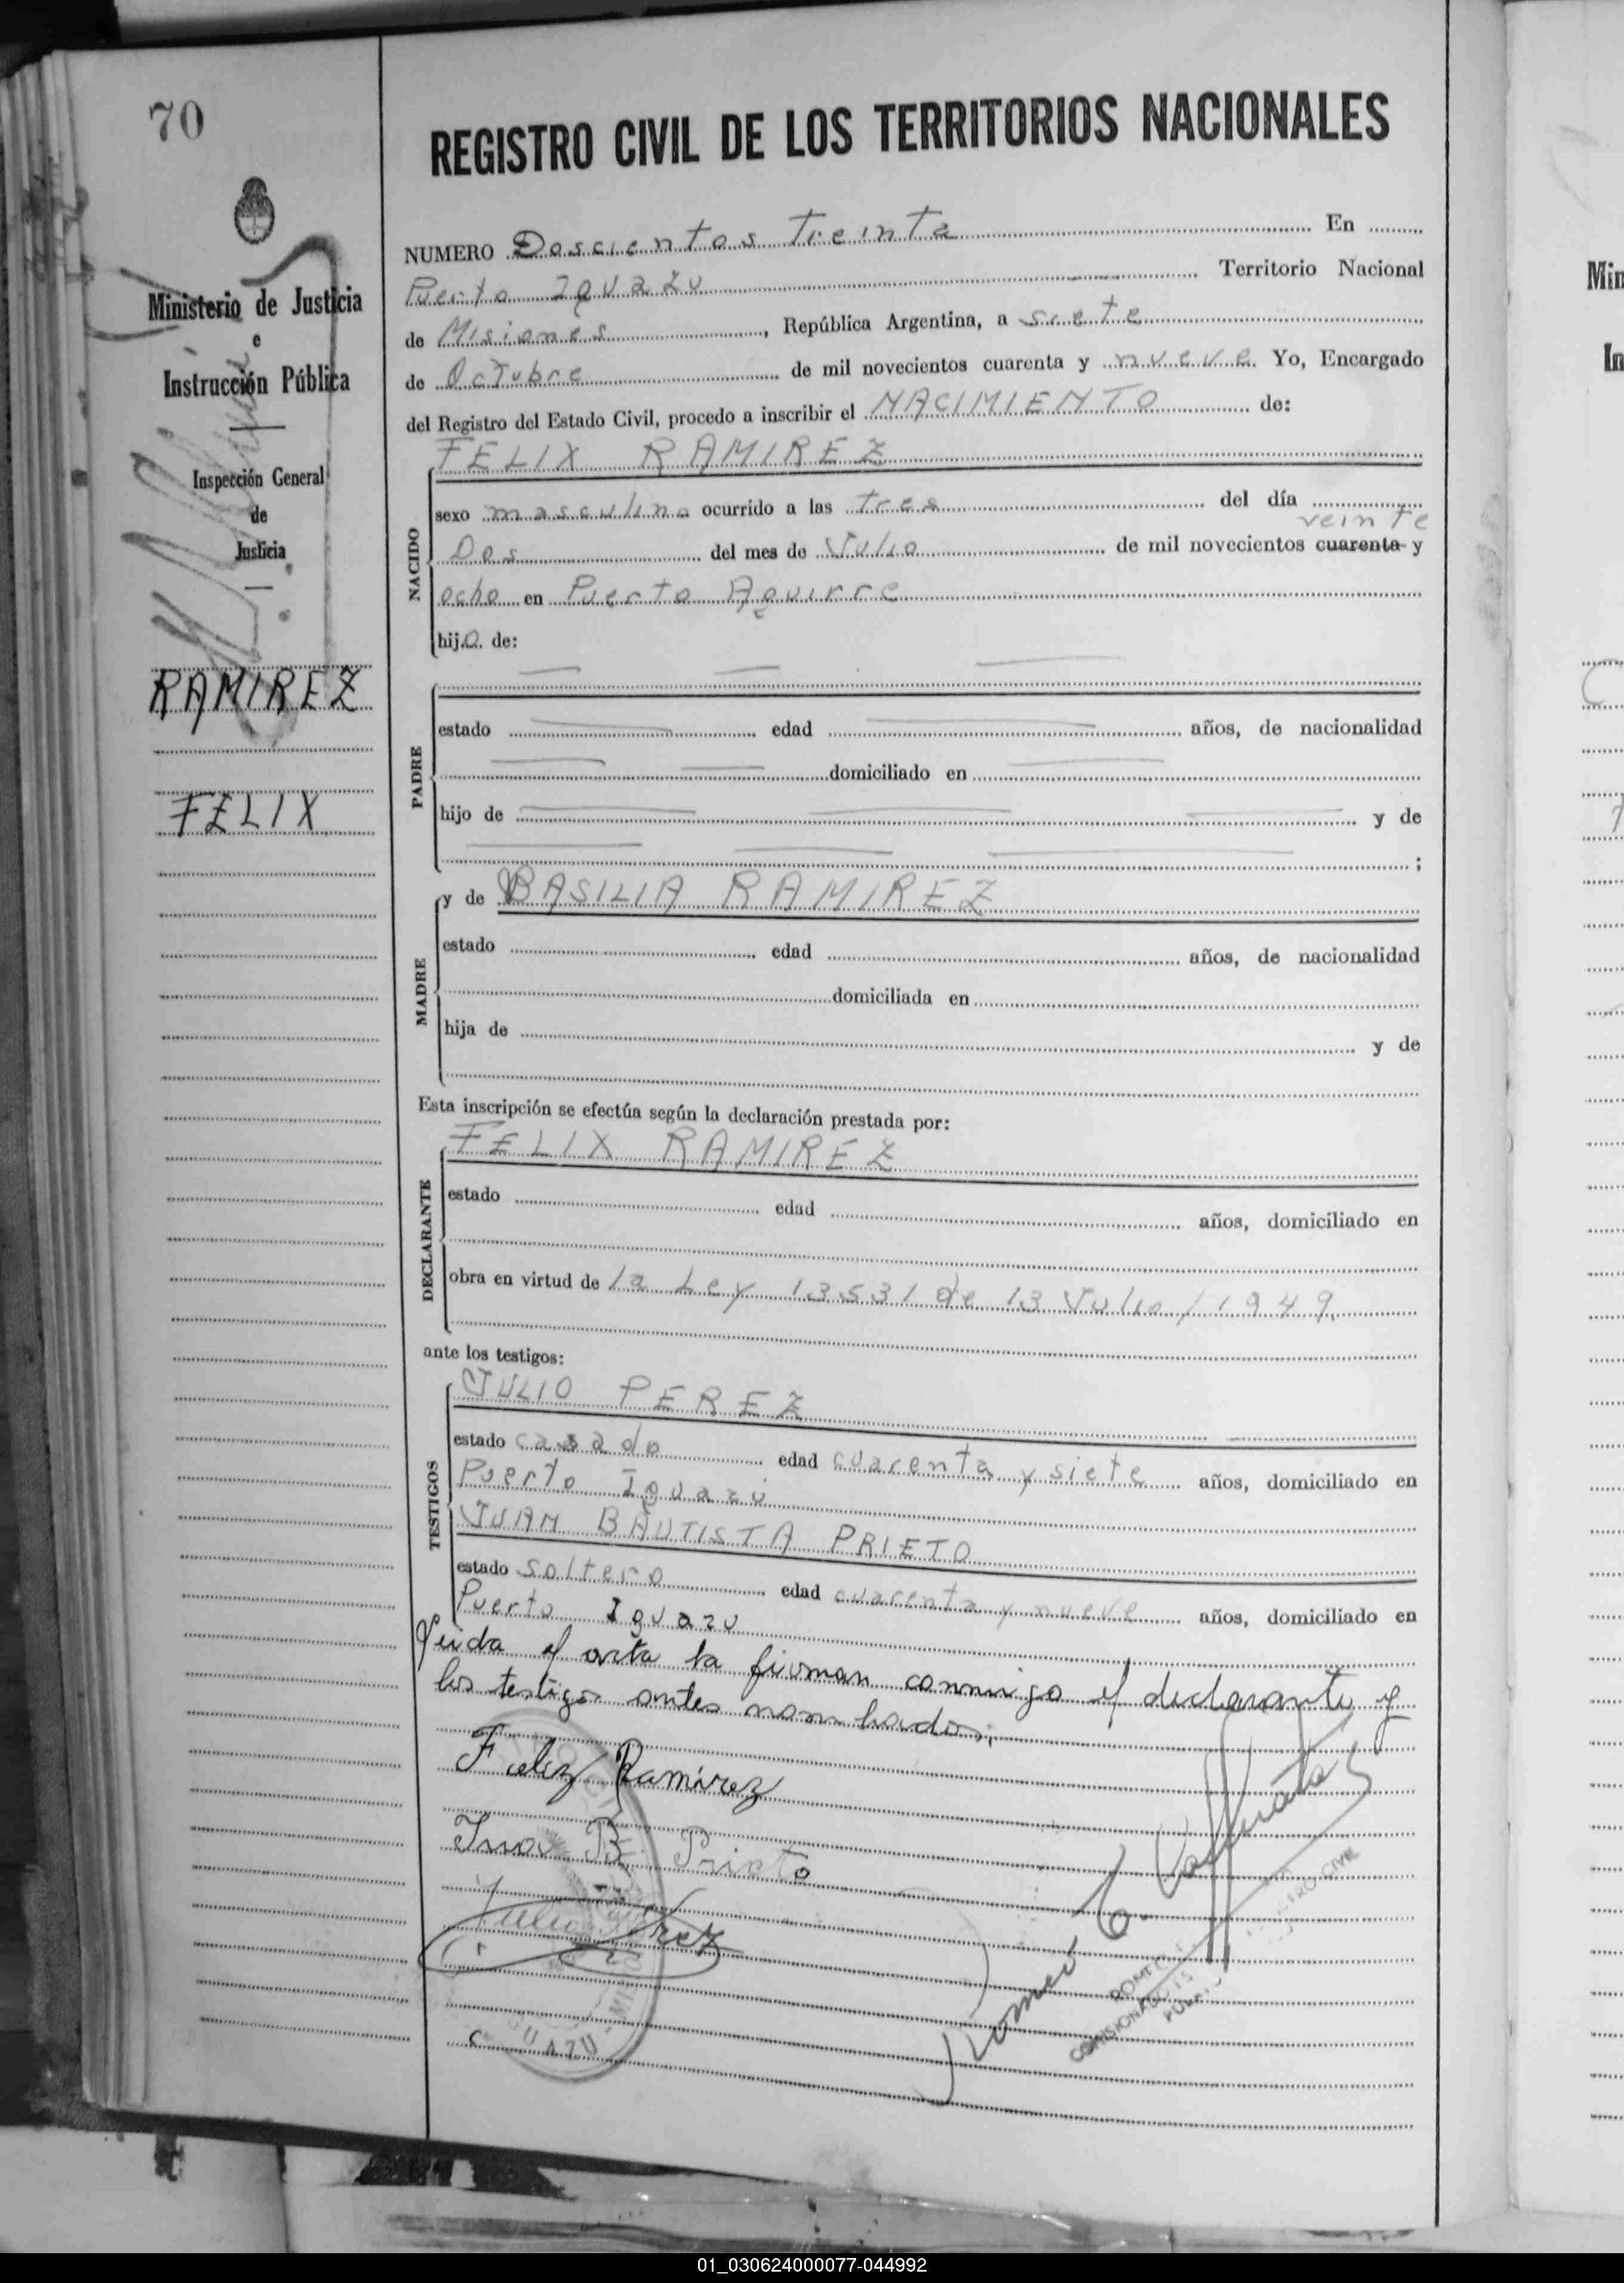 70
REGISTRO CIVIL DE LOS TERRITORIOS NACIONALES
NUMERO Doscientos Treinta En
Puerto Iguazu Territorio Nacional
de Misiones, República Argentina, a siete
de Octubre de mil novecientos cuarenta y nueve. Yo, Encargado
del Registro del Estado Civil, procedo a inscribir el NACIMIENTO de:
Ministerio de Justicia
e
Instrucción Pública
Inspección General
de
Justicia
RAMIREZ
FELIX
NACIDO
FELIX RAMIREZ
sexo masculino ocurrido a las tres del día
veinte
Dos del mes de Julio de mil novecientos cuarenta y
ocho en Puerto Aguirre
hijo. de:
PADRE
estado edad años, de nacionalidad
domiciliado en
hijo de y de
;
MADRE
y de BASILIA RAMIREZ
estado edad años, de nacionalidad
domiciliada en
hija de y de
Esta inscripción se efectúa según la declaración prestada por:
DECLARANTE
FELIX RAMIREZ
estado edad años, domiciliado en
obra en virtud de la Ley 13531 de 13 Julio/1949.
ante los testigos:
TESTIGOS
JULIO PEREZ
estado casado edad cuarenta y siete años, domiciliado en
Puerto Iguazú
JUAN BAUTISTA PRIETO
estado soltero edad cuarenta y nueve años, domiciliado en
Puerto Iguazu
Leida el acta la firman conmigo el declarante y
los testigos antes nombrados.
Felix Ramírez
Juan B. Prieto
Julio Perez
Romeo
REGISTRO CIVIL
COMISIONADO
GUAZU - MI
01_030624000077-044992